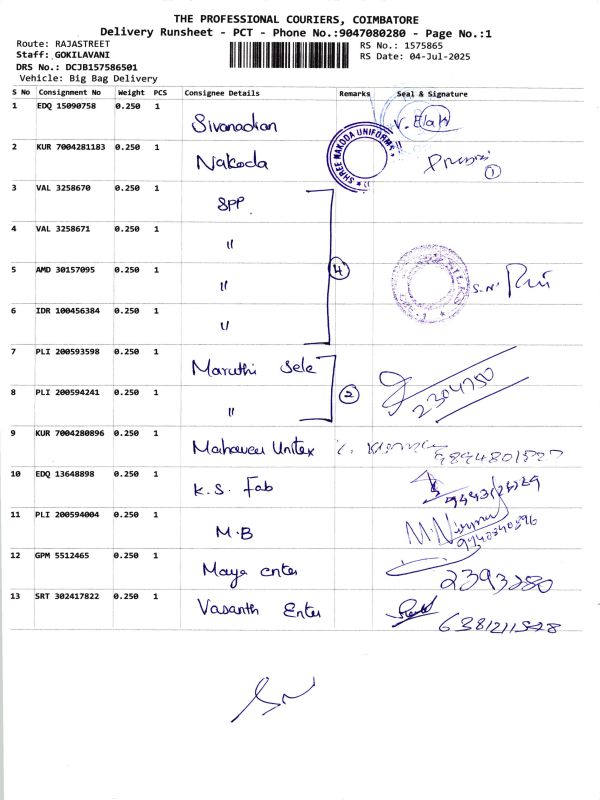 THE PROFESSIONAL COURIERS, COIMBATORE
Delivery Runsheet - PCT - Phone No.:9047080280 - Page No.:1
Route: RAJASTREET
RS No.: 1575865
Staff: GOKILAVANI
RS Date: 04-Jul-2025
DRS No.: DCJB157586501
Vehicle: Big Bag Delivery
S No Consignment No Weight PCS Consignee Details Remarks Seal & Signature
1 EDQ 15090758 0.250 1 Sivanadian V. Elak
2 KUR 7004281183 0.250 1 Nakoda SHREE NAKODA UNIFORMS 1
3 VAL 3258670 0.250 1 SPP
4 VAL 3258671 0.250 1 "
5 AMD 30157095 0.250 1 " 4 S.N.
6 IDR 100456384 0.250 1 "
7 PLI 200593598 0.250 1 Maruthi Sele
8 PLI 200594241 0.250 1 " 2 2304750
9 KUR 7004280896 0.250 1 Mahaveer Unitex
10 EDQ 13648898 0.250 1 K.S. Fab
11 PLI 200594004 0.250 1 M.B
12 GPM 5512465 0.250 1 Maya enter 2393280
13 SRT 302417822 0.250 1 Vasanth Enter